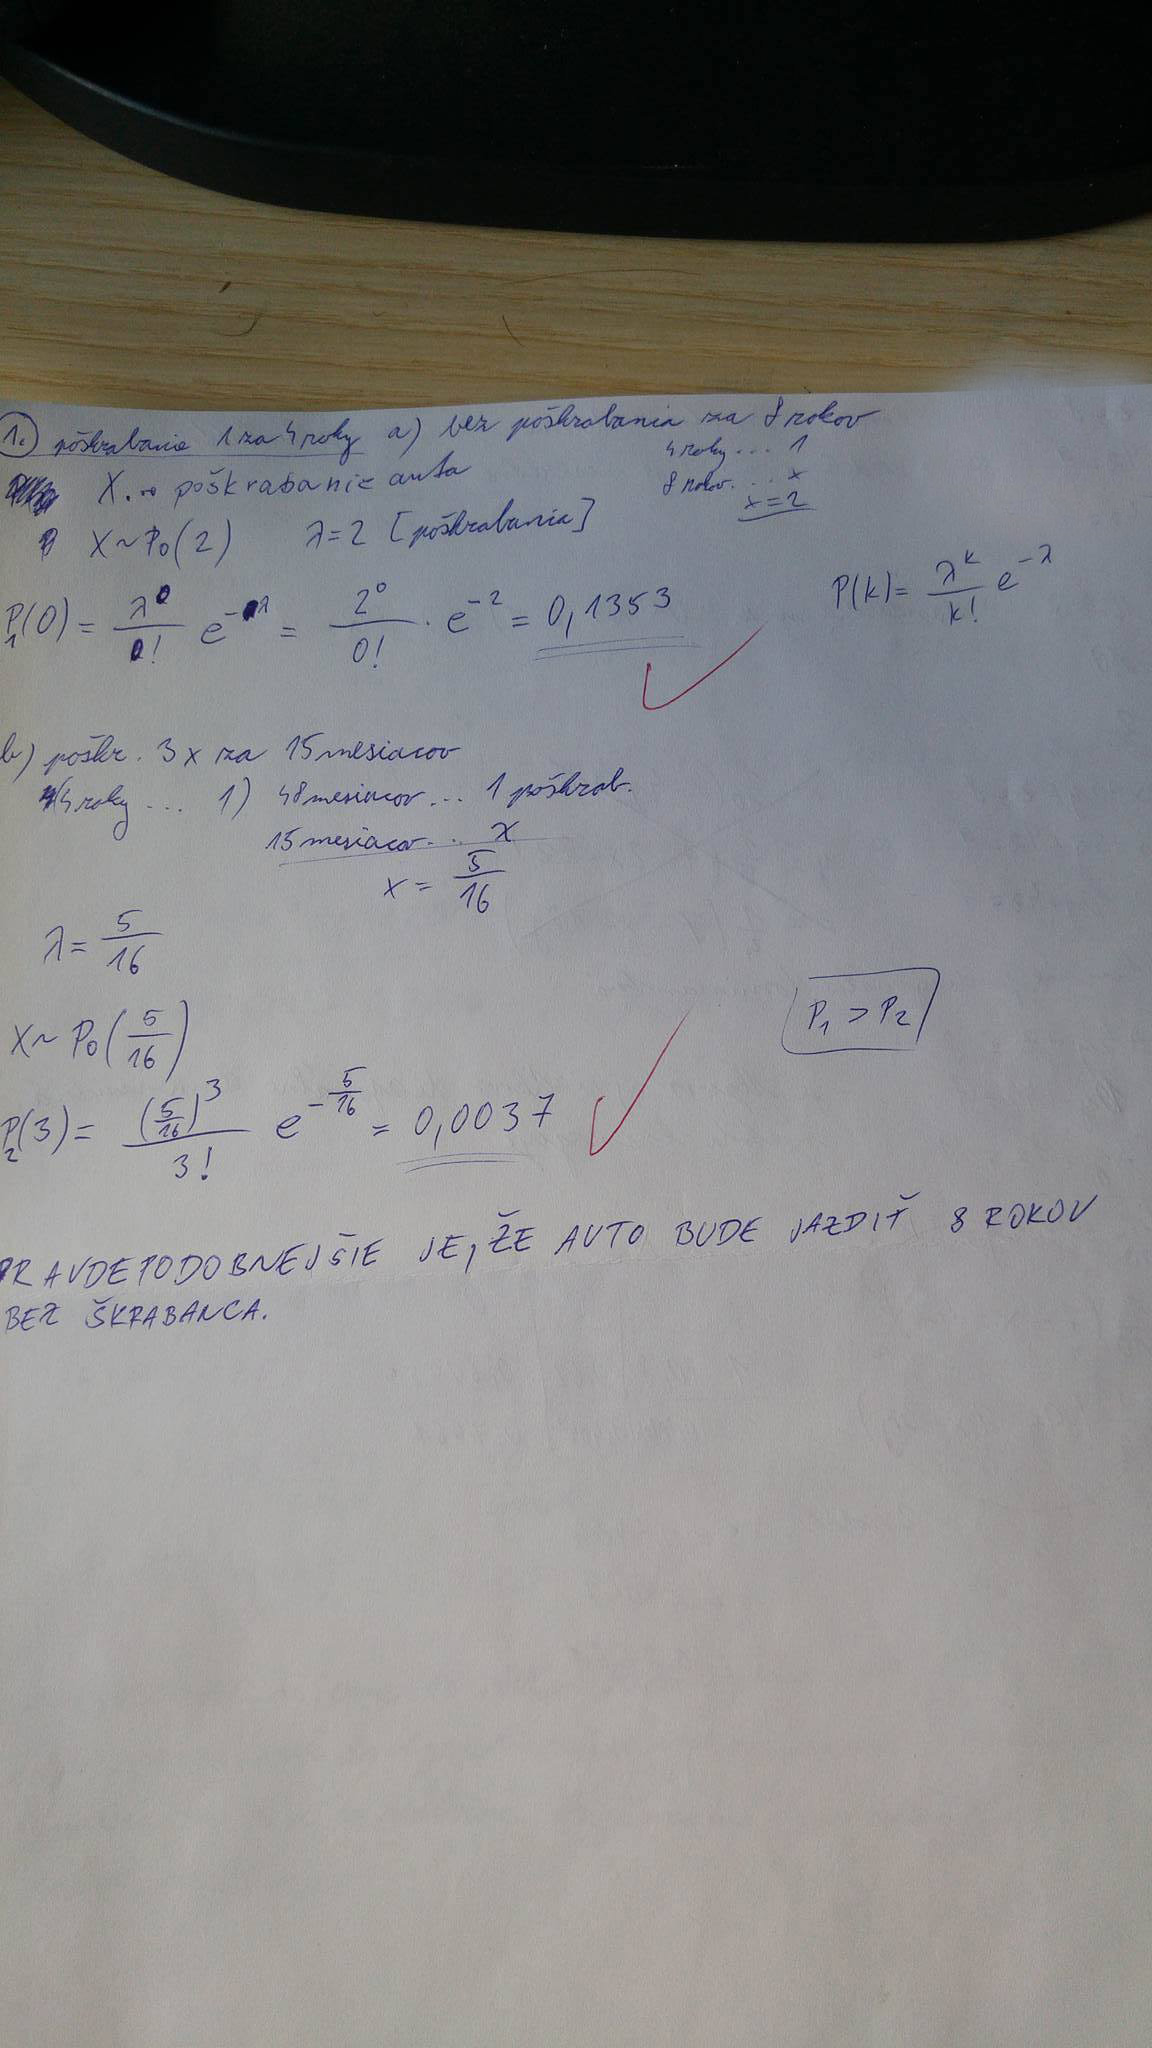 1. poškrabanie 1 za 4 roky a) bez poškrabania za 8 rokov
4 roky ... 1
X ... poškrabanie auta
8 rokov ... x
x = 2
X ~ Po(2) λ = 2 [poškrabania]
P(k) = λ^k / k! e^-λ
P₁(0) = λ^0 / 0! e^-λ = 2^0 / 0! · e^-2 = 0,1353
b) poškr. 3x za 15 mesiacov
4 roky ... 1) 48 mesiacov ... 1 poškrab.
15 mesiacov ... x
x = 5/16
λ = 5/16
X ~ Po(5/16)
P₁ > P₂
P₂(3) = (5/16)^3 / 3! e^-5/16 = 0,0037
PRAVDEPODOBNEJŠIE JE, ŽE AUTO BUDE JAZDIŤ 8 ROKOV
BEZ ŠKRABANCA.